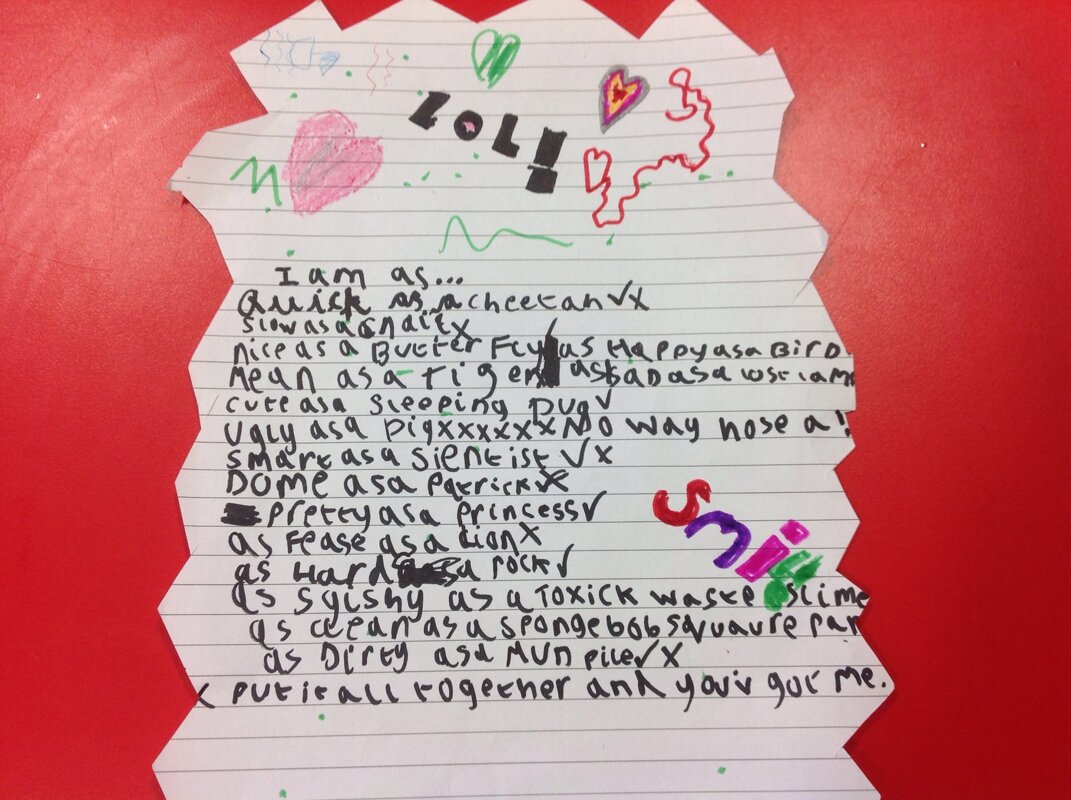 LOL!
I am as...
Quick as a cheetah ✓x
slow as a snail x
nice as a Butter Fly as Happy as a BirD.
mean as a tiger as SaD as a lost lam
cute as a Sleeping Pug ✓
ugly as a pig xxxxxx No way hose a!
smart as a sientist ✓x
DOME as a Patrick ✓x
Pretty as a princess ✓
as Fease as a Lion x
as Hard a rock ✓
as Sqishy as a Toxick waste Slime
as clean as a spongebob squaure pan
as Dirty as a MuD pile ✓x
put it all together and you'v got me.